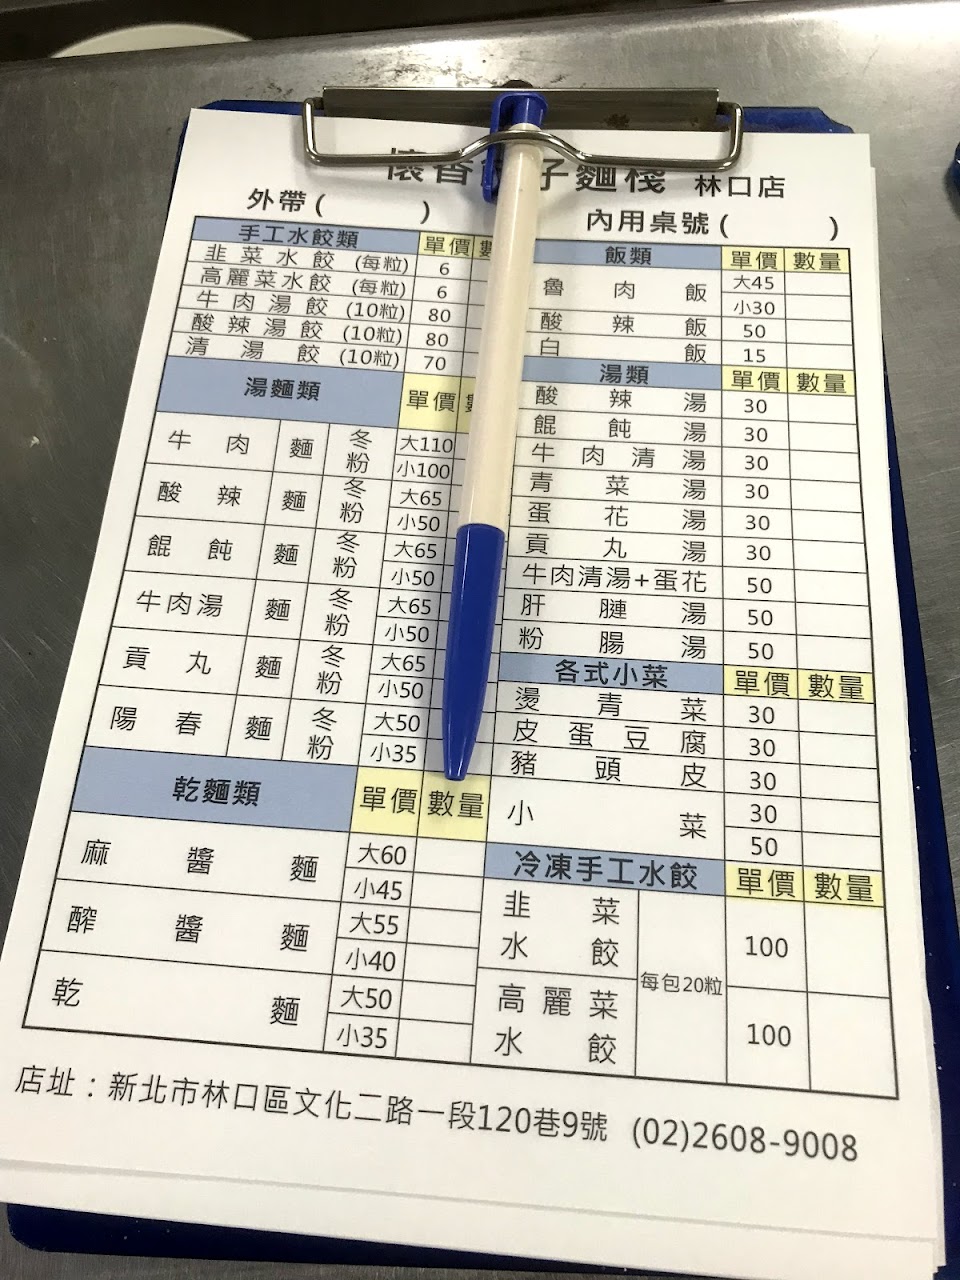 懷香 子麵棧 林口店
外帶( )
內用桌號( )
手工水餃類 單價
韭菜水餃 (每粒) 6
高麗菜水餃 (每粒) 6
牛肉湯餃 (10粒) 80
酸辣湯餃 (10粒) 80
清湯餃 (10粒) 70
湯麵類 單價
牛肉 麵 冬粉 大110
小100
酸辣 麵 冬粉 大65
小50
餛飩 麵 冬粉 大65
小50
牛肉湯 麵 冬粉 大65
小50
貢丸 麵 冬粉 大65
小50
陽春 麵 冬粉 大50
小35
乾麵類 單價 數量
麻醬麵 大60
小45
醡醬麵 大55
小40
乾麵 大50
小35
飯類 單價 數量
魯肉飯 大45
小30
酸辣飯 50
白飯 15
湯類 單價 數量
酸辣湯 30
餛飩湯 30
牛肉清湯 30
青菜湯 30
蛋花湯 30
貢丸湯 30
牛肉清湯+蛋花 50
肝腱湯 50
粉腸湯 50
各式小菜 單價 數量
燙青菜 30
皮蛋豆腐 30
豬頭皮 30
小菜 30
50
冷凍手工水餃 單價 數量
韭菜
水餃 100
每包20粒
高麗菜
水餃 100
店址：新北市林口區文化二路一段120巷9號 (02)2608-9008